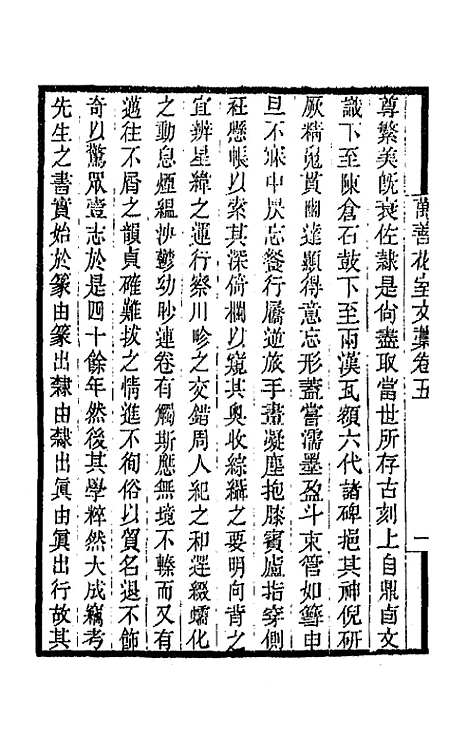 萬善花室文藁卷五
一
尊繁美旣衰佐隸是尙盡取當世所存古刻上自鼎卣文
識下至陳倉石鼓下至兩漢瓦額六代諸碑挹其神倪硏
厥精鬼貫幽達顯得意忘形蓋嘗濡墨盈斗束管如簪申
旦不寐中昃忘餐行屩逆旅手畫凝塵抱膝賓廬指穿側
衽懸帳以索其深倚欄以窺其奧收綜緇之要明向背之
宜辨星緯之運行察川畛之交錯周人紀之和遲綴蠕化
之動息煙縕沙鬱幼眇連卷有觸斯應無境不轃而又有
邁往不屑之韻貞確難拔之情進不徇俗以質名退不飾
奇以驚眾壹志於是四十餘年然後其學粹然大成竊考
先生之書實始於篆由篆出隸由隸出眞由眞出行故其